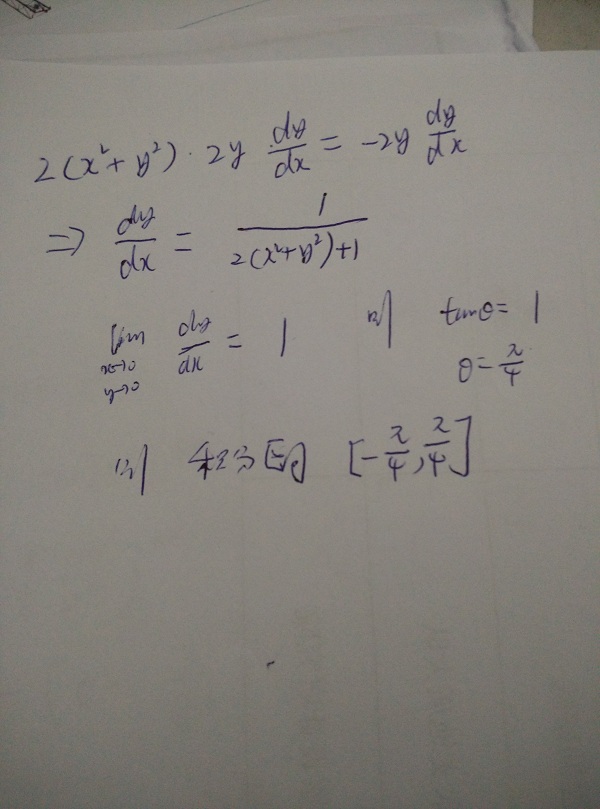 2(x²+y²)·2y dy/dx = -2y dy/dx
⇒ dy/dx = 1/(2(x²+y²)+1)
lim x→0 y→0 dy/dx = 1 则 tanθ = 1
θ = π/4
则 [-π/4, π/4]